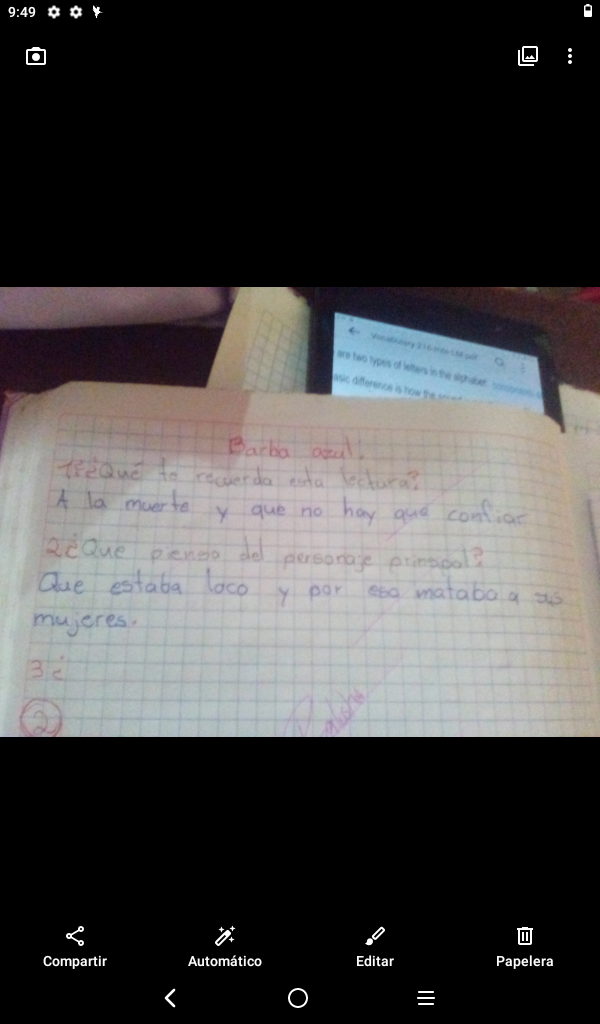 9:49
Vocabulary
are two types of letters in the alphabet
asic difference is how the
Barba azul.
1¿Qué te recuerda esta lectura?
A la muerte y que no hay que confiar
2¿Que pienso del personaje principal?
Que estaba loco y por eso mataba a sus
mujeres.
3¿
2
Compartir
Automático
Editar
Papelera